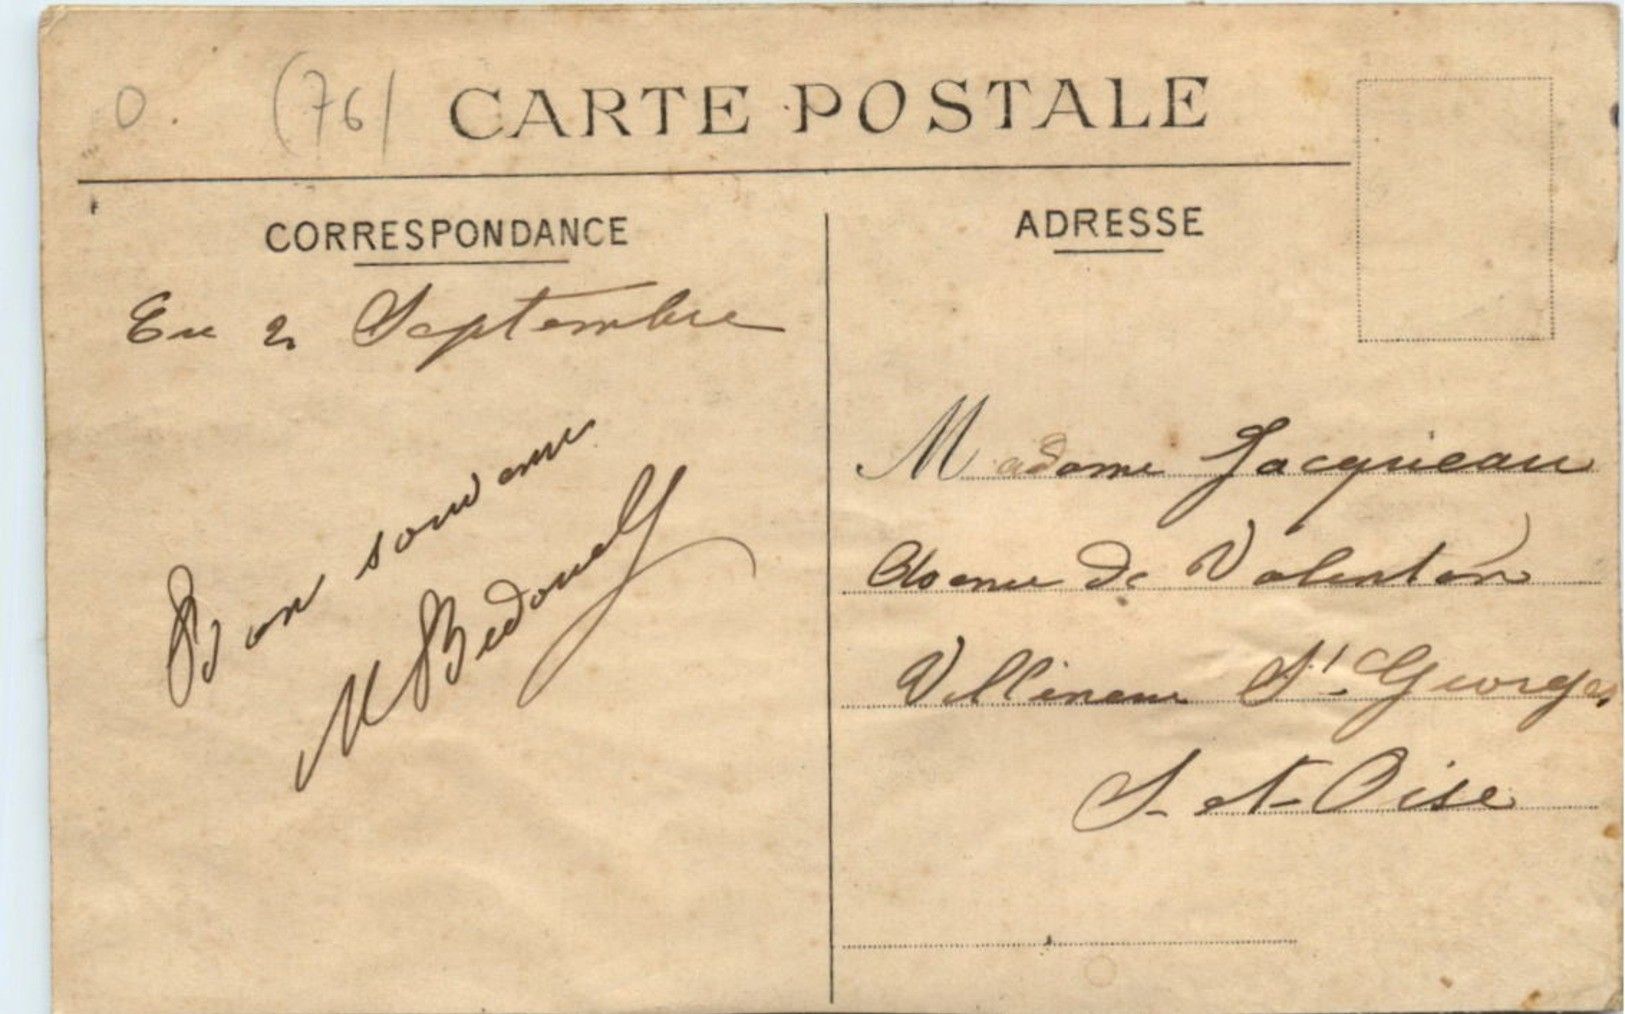 O. (76)
CARTE POSTALE
CORRESPONDANCE
Eu 2 Septembre
Bon souvenir
M Bedouel
ADRESSE
Madame Jacqueau
Avenue de Valenton
Villeneuve St. Georges
S. et Oise